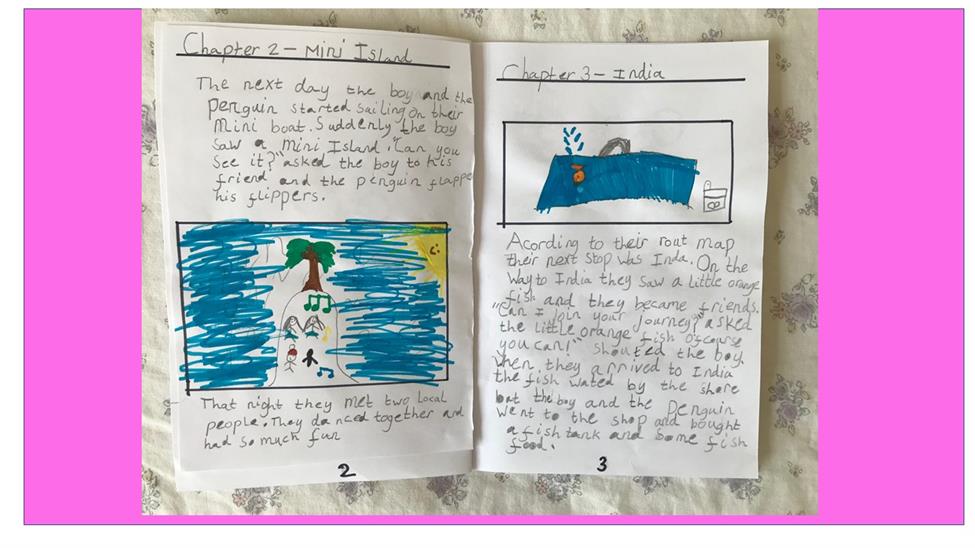 Chapter 2 – Mini Island
The next day the boy and the
penguin started sailing on their
mini boat. Suddenly the boy
saw a mini Island. "Can you
see it?" asked the boy to his
friend and the penguin flappe
his flippers.
That night they met two local
people. They danced together and
had so much fun
2
Chapter 3 – India
Acording to their rout map
their next stop was Inda. On the
way to India they saw a little orange
fish and they became friends.
"Can I join your journey?" asked
the little orange fish Ofcourse
you can!" shouted the boy.
when they arrived to India
the fish wated by the shore
but the boy and the Penguin
went to the shop and bought
a fish tank and some fish
food.
3